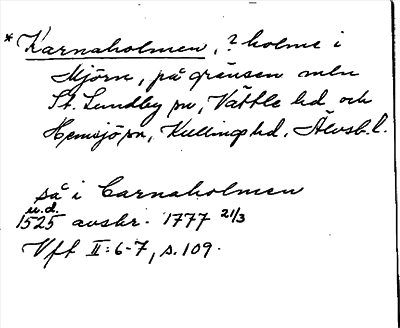 * Karnaholmen, ? holme i
Mjörn, på gränsen mln
St. Lundby sn, Vättle hd och
Hemsjö sn, Kullings hd, Älvsb. l.
så i Carnaholmen
u.d.
1525 avskr. 1777 21/3
Vft II:6-7, s. 109.